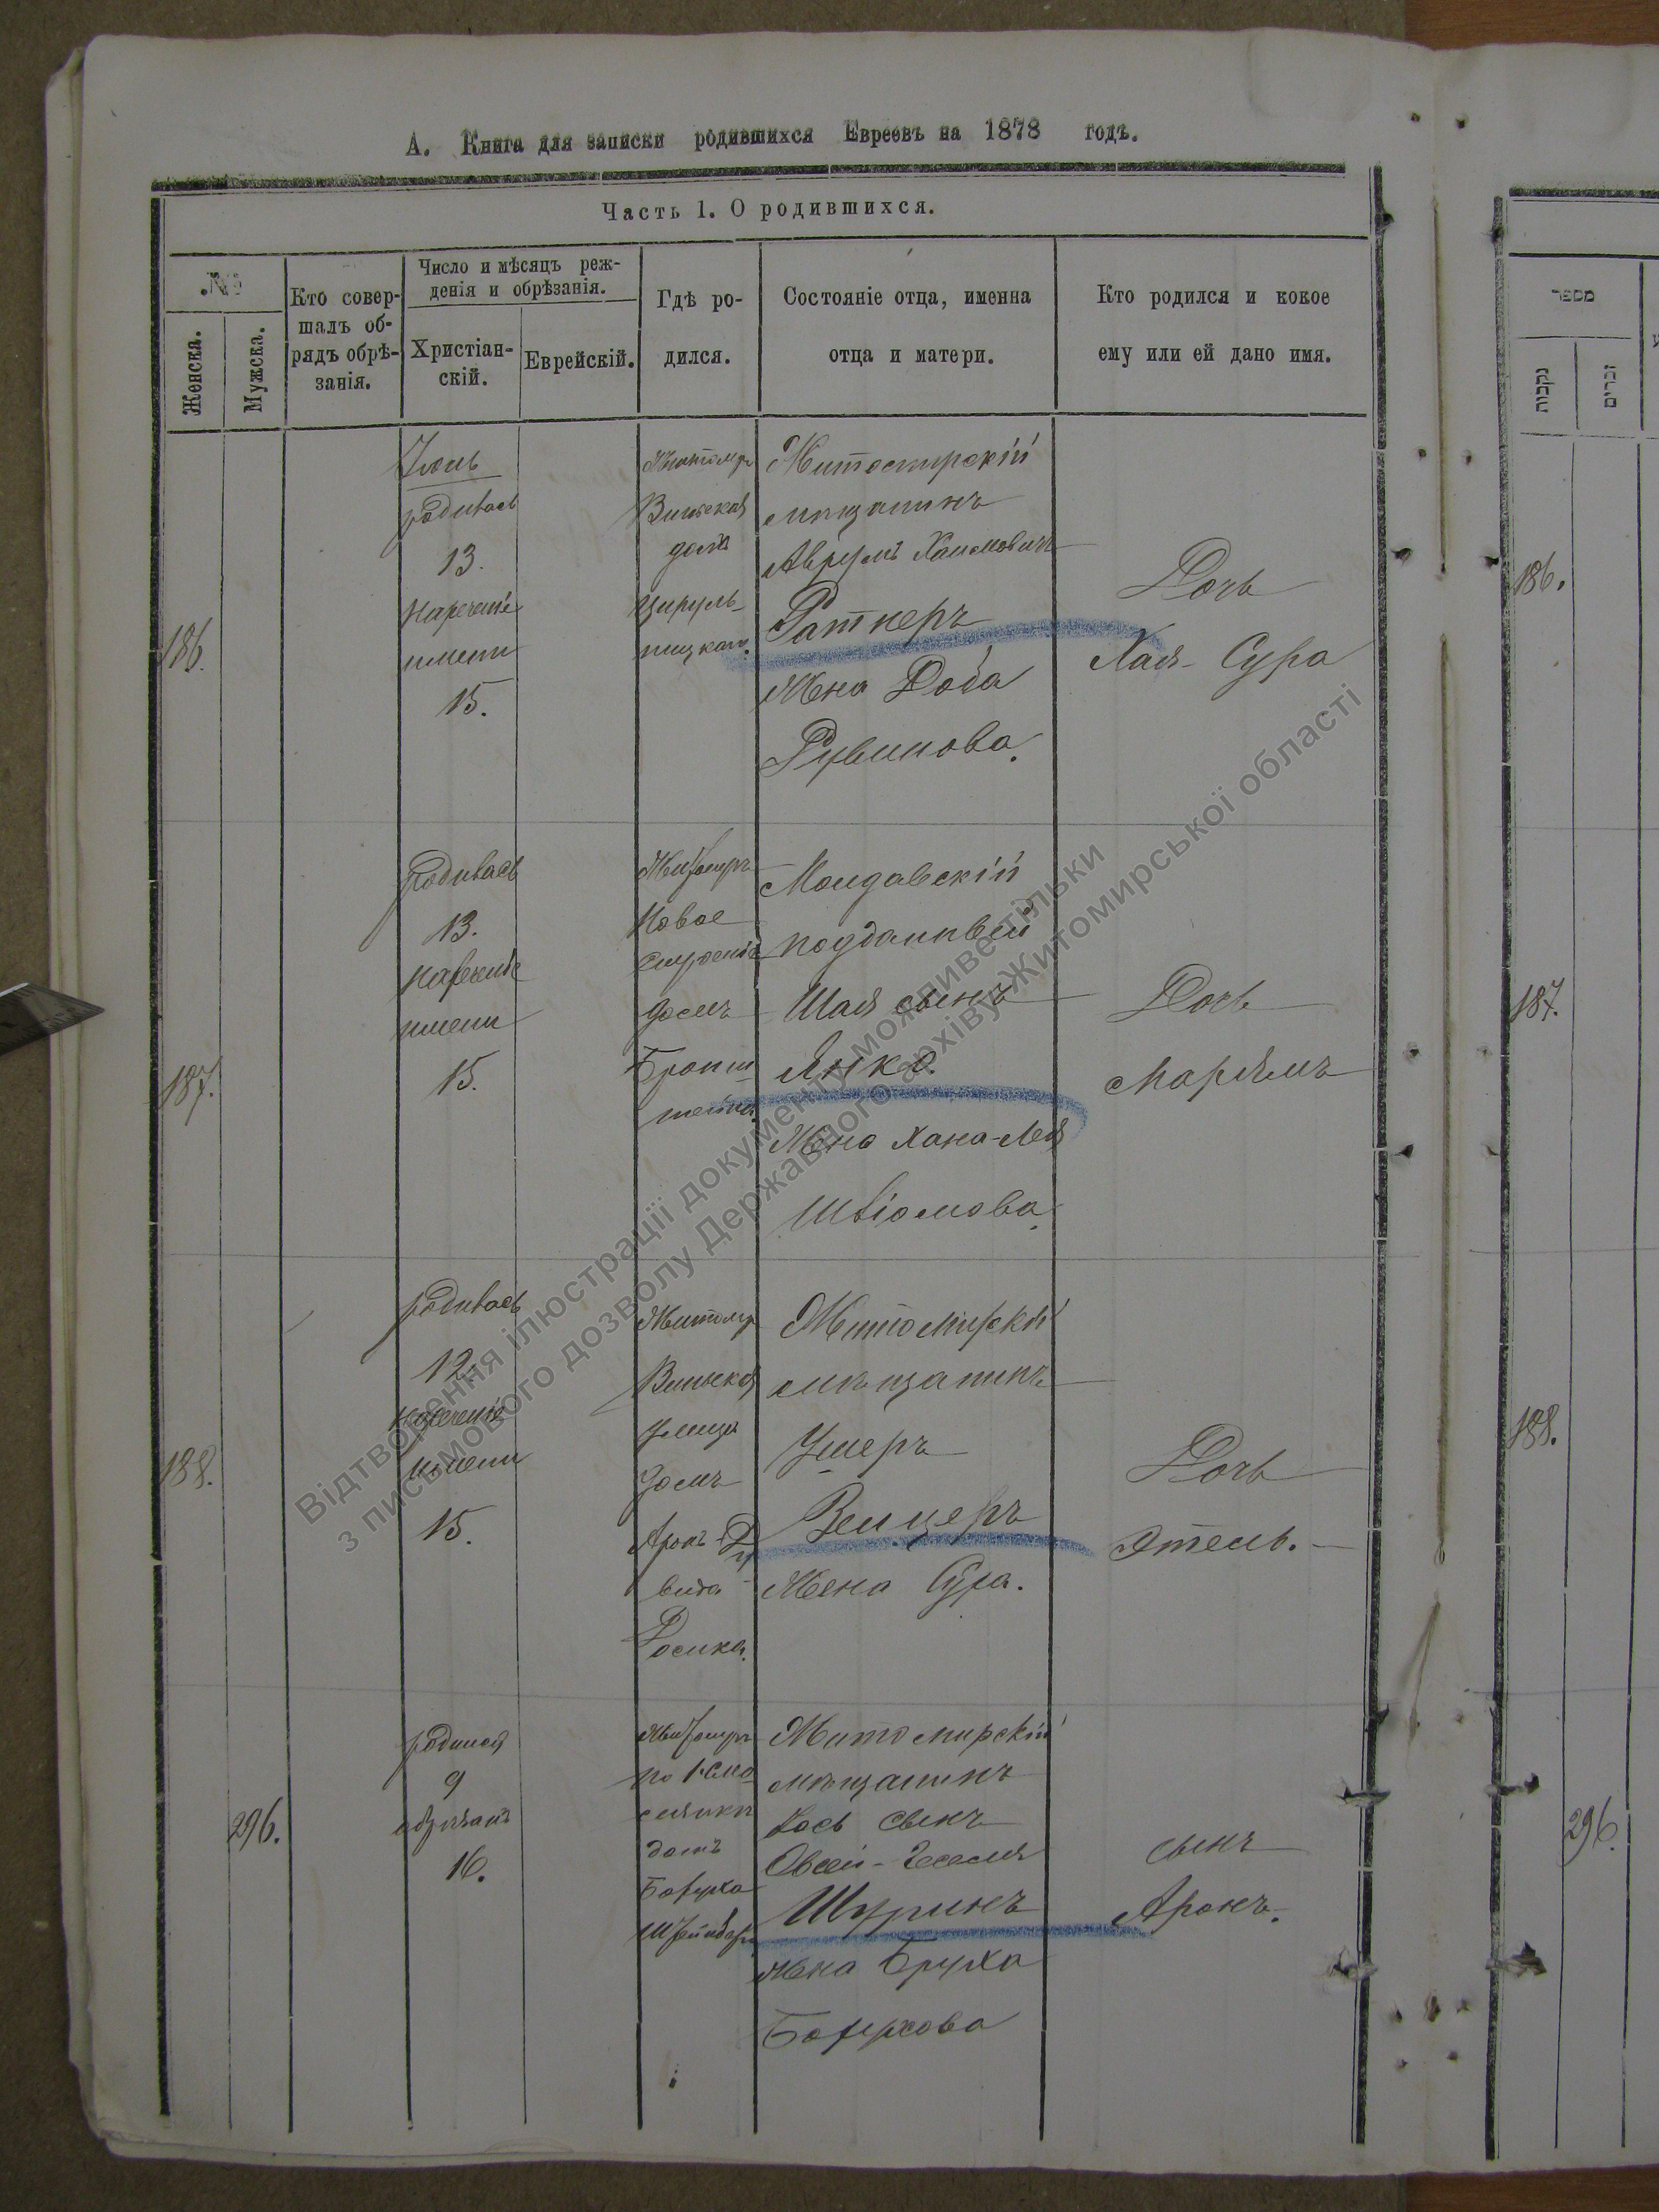 А. Книга для записки родившихся Евреевъ на 1878 годъ.
Часть 1. О родившихся.
№
Женска.
Мужска.
Кто совер-
шалъ об-
рядъ обрѣ-
занія.
Число и мѣсяцъ реж-
денія и обрѣзанія.
Христіан-
скій.
Еврейскій.
Гдѣ ро-
дился.
Состояніе отца, именна
отца и матери.
Кто родился и кокое
ему или ей дано имя.
186.
Іюнь
родилась
13.
нареченіе
имени
15.
Житомир
Вильская
домъ
Цируль-
Житомирскій
мѣщанинъ
Аврумъ Хаимовичъ
Ратнеръ
жена Доба
Рувинова.
Дочь
Хая-Сура
187.
родилась
13.
нареченіе
имени
15.
Житомиръ
Новое
строеніе
домъ
Бронш-
тейна.
Молдавскій
подданный
Шая сынъ
Янко.
Жена Хана-Лея
Дочь
Марьямъ
188.
родилась
12.
нареченіе
имени
15.
Житомир
Вильская
улица
домъ
Аронъ-Да
вида
Жытомирскій
мѣщанинъ
Ушеръ
Вейцеръ
Жена Сура.
Дочь
Этель.
296.
родился
9
обрѣзанъ
16.
Житомиръ
домъ
Боруха
Житомирскій
мѣщанинъ
Іось сынъ
Овсей-Зеселя
Шуринъ
жена Бруха
Борухова
сынъ
Аронъ.
מספר
נקבות
זכרים
186.
187.
188.
296.
Відтворення ілюстрації документу можливе тільки
з письмового дозволу Державного архіву Житомирської області